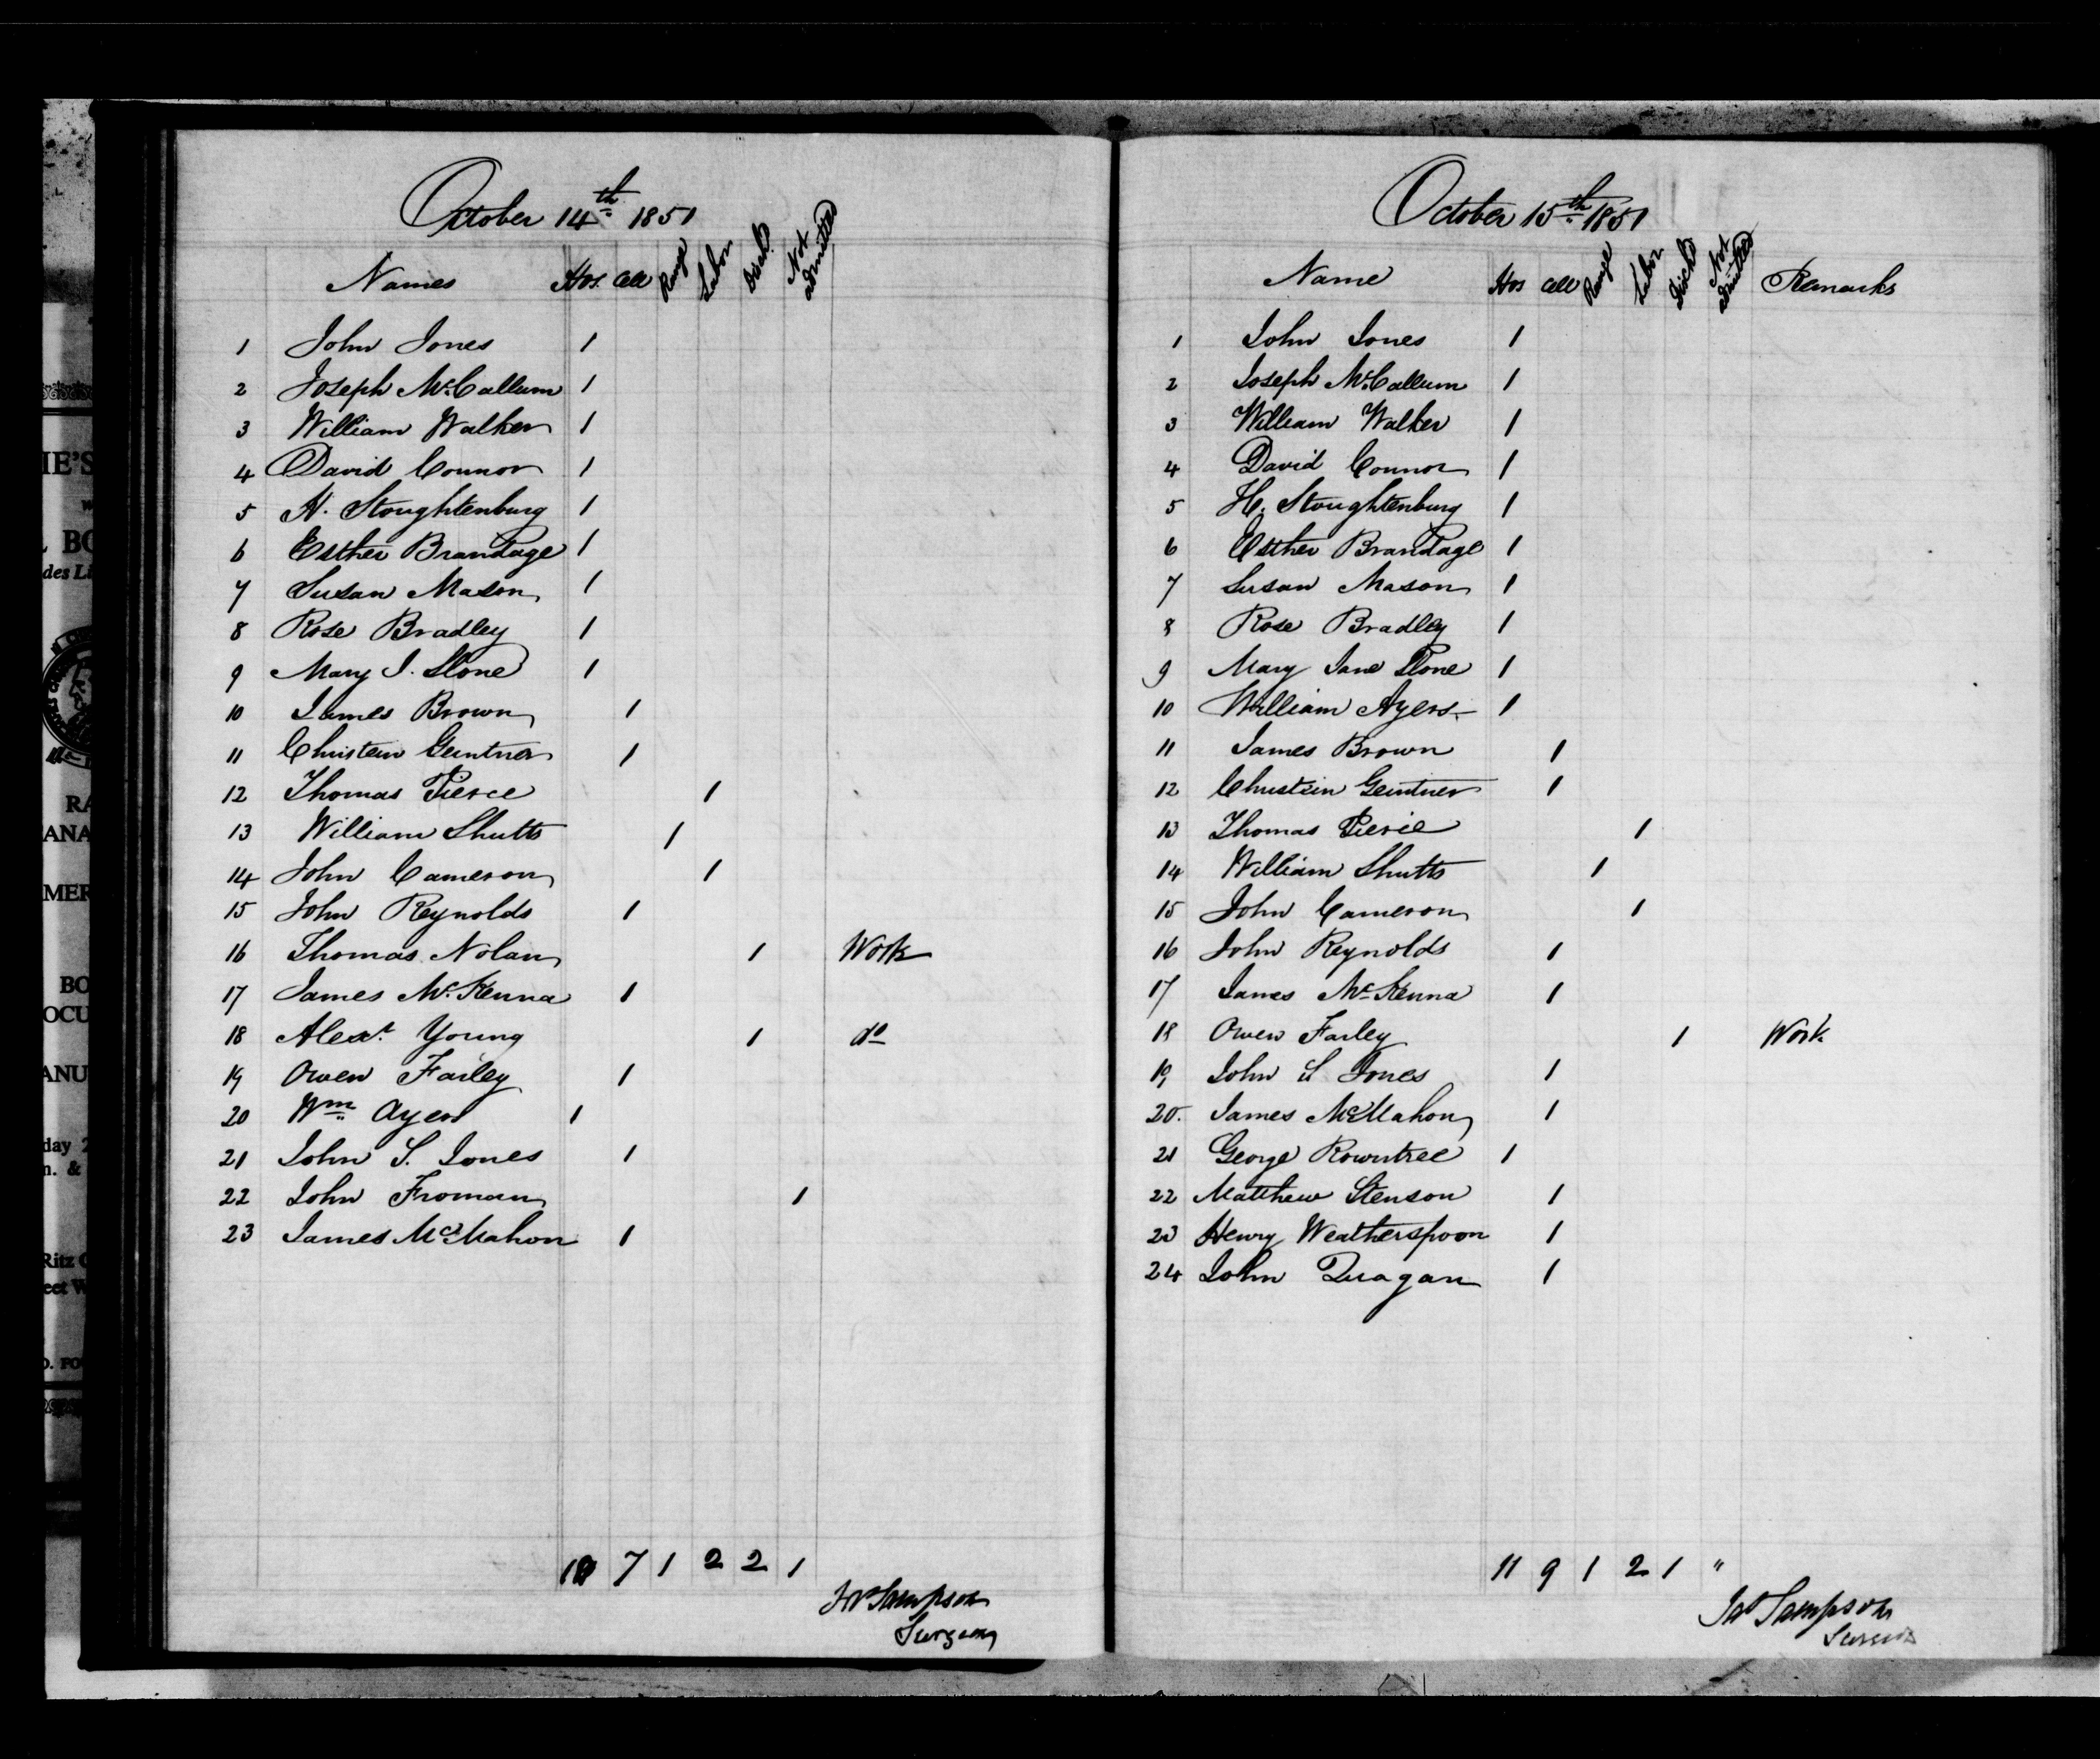 October 14th 1851
Names Hos. Cell Range Labor Disch. Not admitted
1 John Jones 1
2 Joseph McCallum 1
3 William Walker 1
4 David Connor 1
5 H. Stoughtenburg 1
6 Esther Brandage 1
7 Susan Mason 1
8 Rose Bradley 1
9 Mary J. Slone 1
10 James Brown 1
11 Christein Geintner 1
12 Thomas Pierce 1
13 William Shutts 1
14 John Cameron 1
15 John Reynolds 1
16 Thomas Nolan 1 Work
17 James McKenna 1
18 Alexr Young 1 do
19 Owen Farley 1
20 Wm Ayers 1
21 John S. Jones 1
22 John Froman 1
23 James McMahon 1
10 7 1 2 2 1
Jas Sampson
Surgeon
October 15th 1851
Name Hos Cell Range Labor Discht Not admitted Remarks
1 John Jones 1
2 Joseph McCallum 1
3 William Walker 1
4 David Connor 1
5 H. Stoughtenburg 1
6 Esther Brandage 1
7 Susan Mason 1
8 Rose Bradley 1
9 Mary Jane Slone 1
10 William Ayers 1
11 James Brown 1
12 Christein Geintner 1
13 Thomas Pierce 1
14 William Shutts 1
15 John Cameron 1
16 John Reynolds 1
17 James McKenna 1
18 Owen Farley 1 Work
19 John S Jones 1
20. James McMahon 1
21 George Rowntree 1
22 Matthew Stenson 1
23 Henry Weatherspoon 1
24 John Duagan 1
11 9 1 2 1 "
Jas Sampson
Surgeon